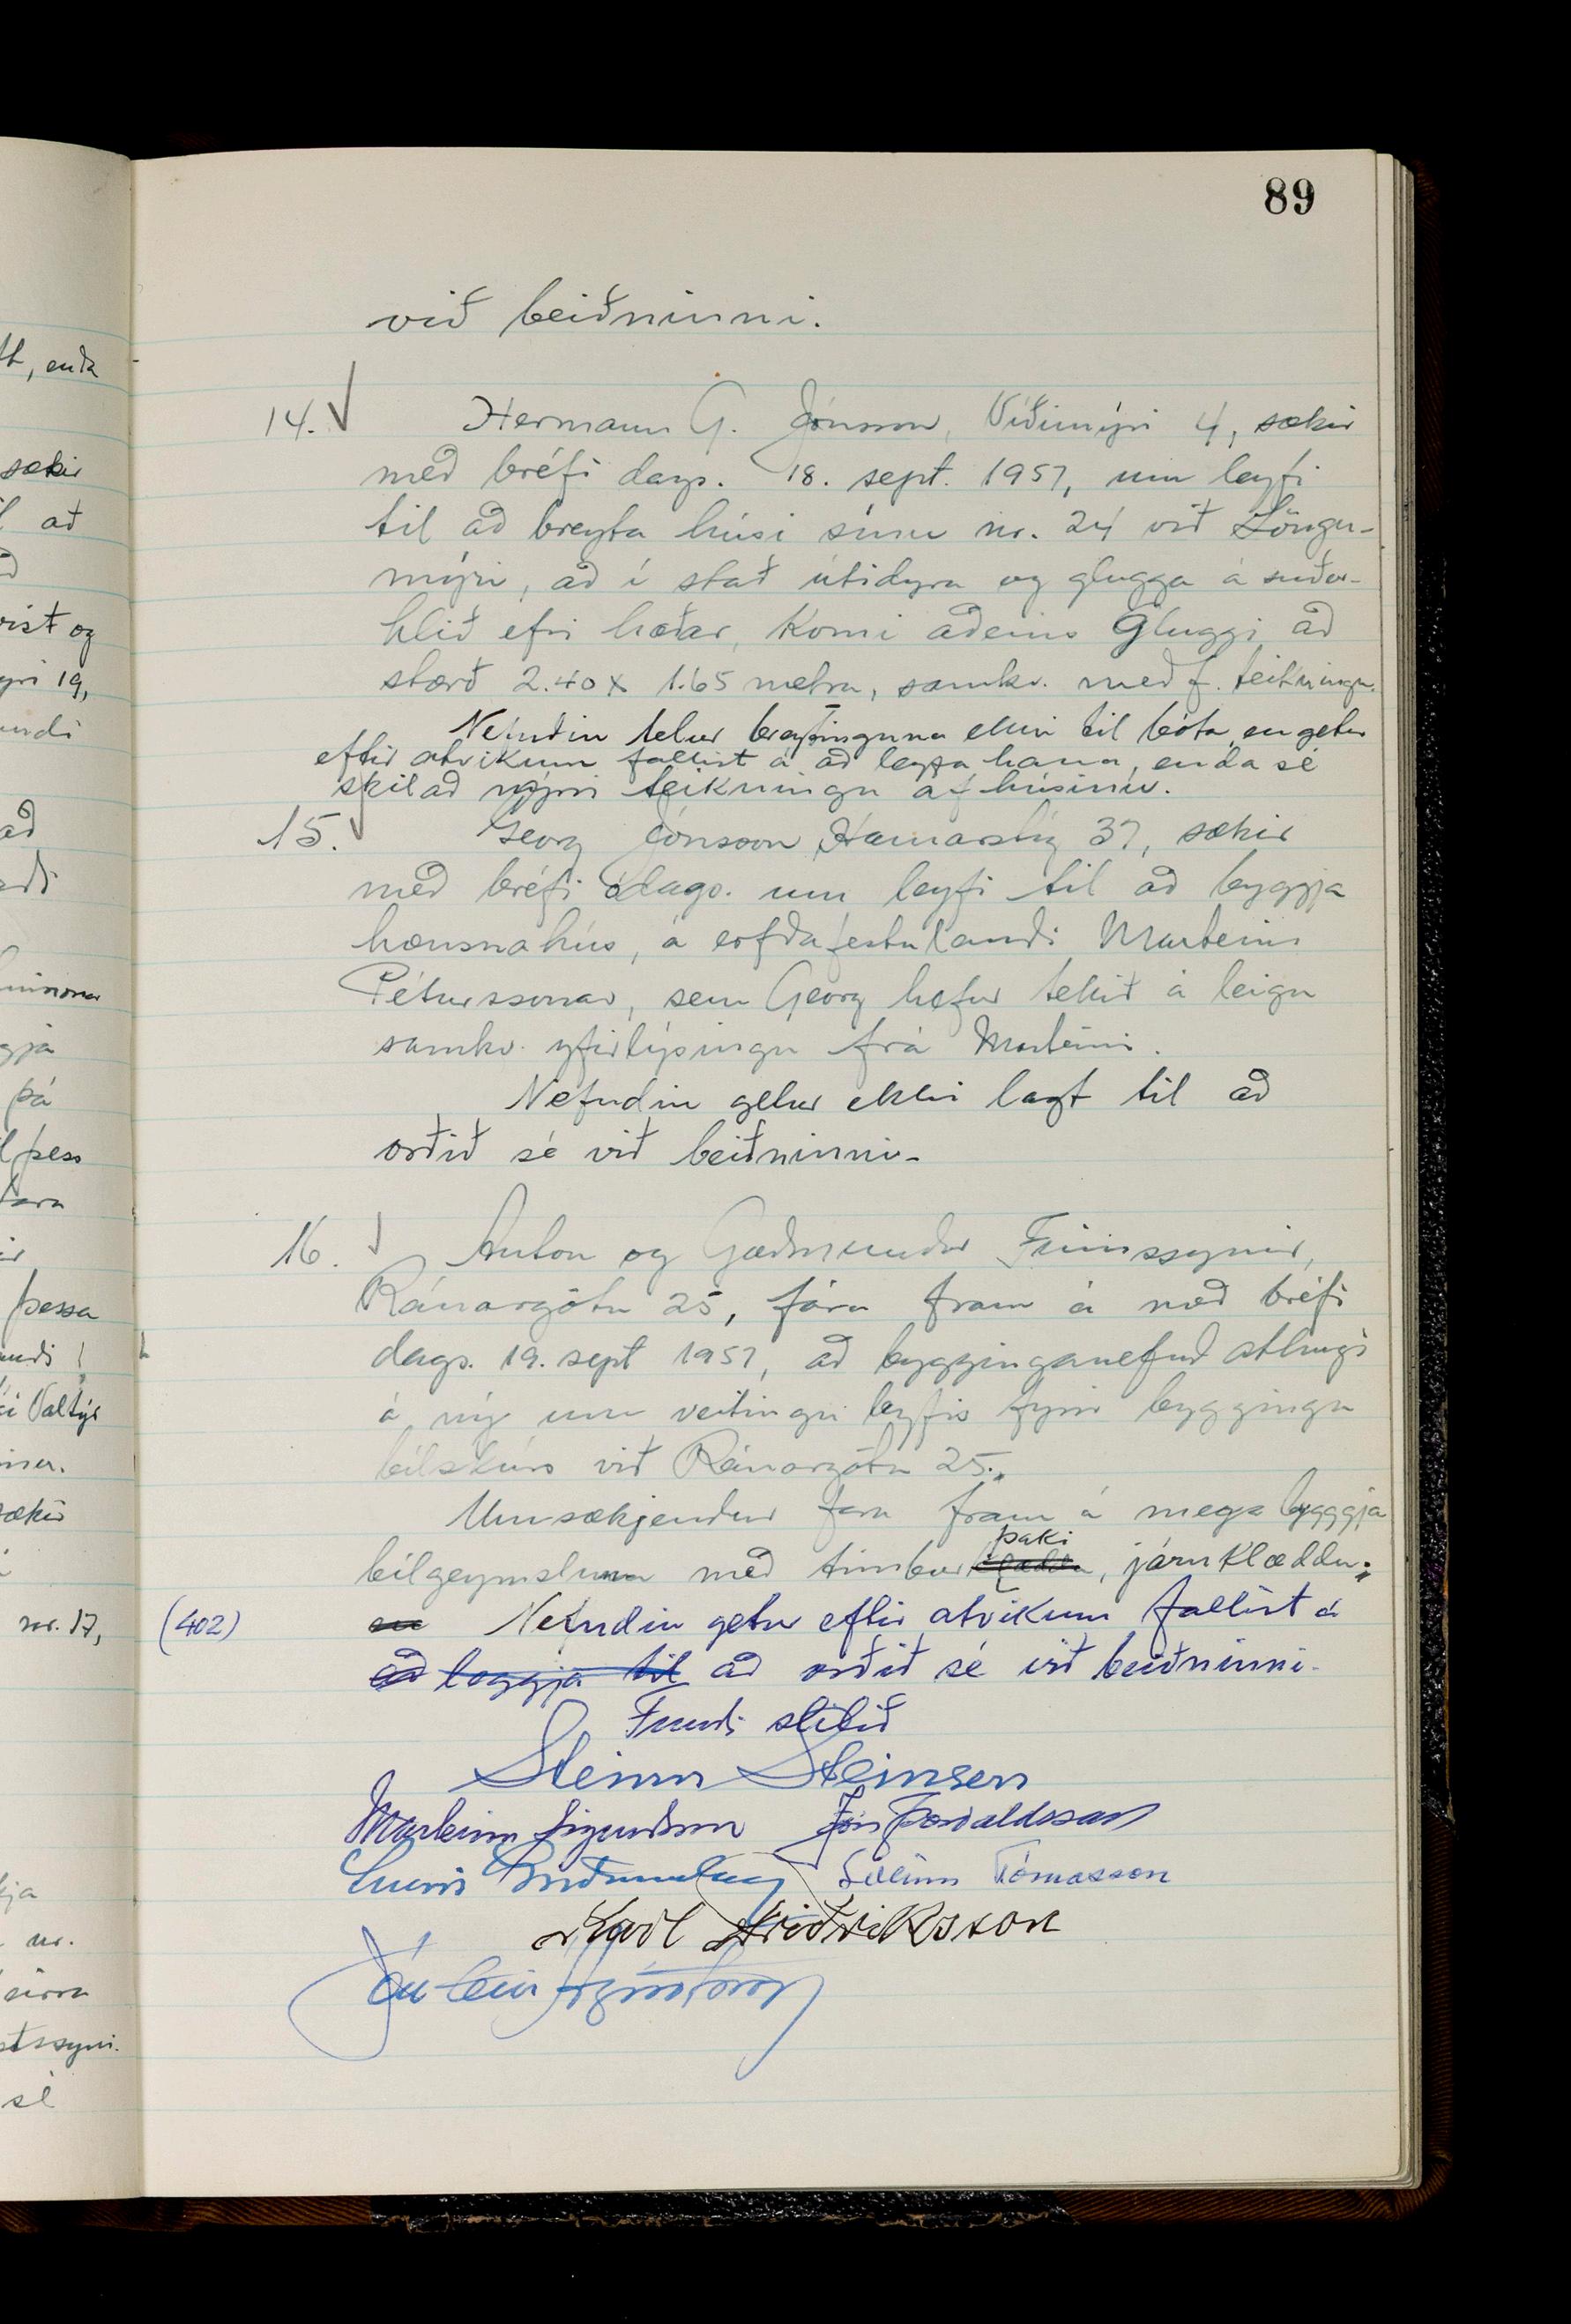 89
við beiðninni.
14. Hermann G. Jónsson, Víðimýri 4, sækir
með bréfi dags. 18. sept. 1957, um leyfi
til að breyta húsi sínu nr. 24 við Löngu-
mýri, að í stað útidyra og glugga á suður-
hlið efri hæðar, komi aðeins gluggi að
stærð 2.40 x 1.65 metra, samkv. meðf. teikningu.
Nefndin telur breytinguna ekki til bóta, en getur
eftir atvikum fallist á að leyfa hana, enda sé
skilað nýjum teikningu af húsinu.
15. Georg Jónsson Hamarstíg 37, sækir
með bréfi ódags. um leyfi til að byggja
hænsnahús, á erfðafestulandi Marteins
Péturssonar, sem Georg hefur tekið á leigu
samkv. yfirlýsingu frá Marteini.
Nefndin getur ekki lagt til að
orðið sé við beiðninni.
16. Anton og Guðmundur Finnssynir,
Ránargötu 25, fara fram á með bréfi
dags. 19. sept 1957, að bygginganefnd athugi
á ný um veitingu leyfis fyrir byggingu
bílskúrs við Ránargötu 25.
Umsækjendur fara fram á mega byggja
þaki
bílgeymsluna með timbur, járnklæddu.
(402) en Nefndin getur eftir atvikum fallist á
að leggja til að orðið sé við beiðninni.
Fundi slitið
Steinn Steinsen
Marteinn Sigurðsson Jón Þorvaldsson
Guðmundsson Sveinn Tómasson
Karl Friðriksson